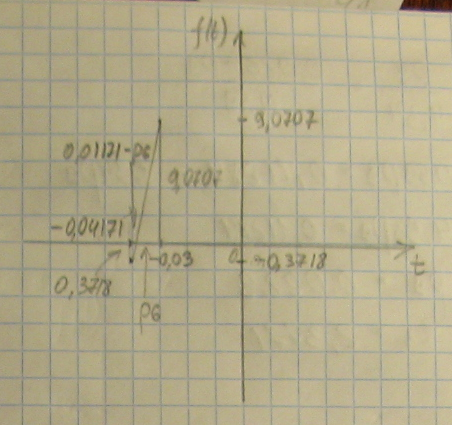 f(t)
9,0707
0,01171-p6
9,0707
-0,04171
-0,03
0
-0,3718
t
0,3718
p6